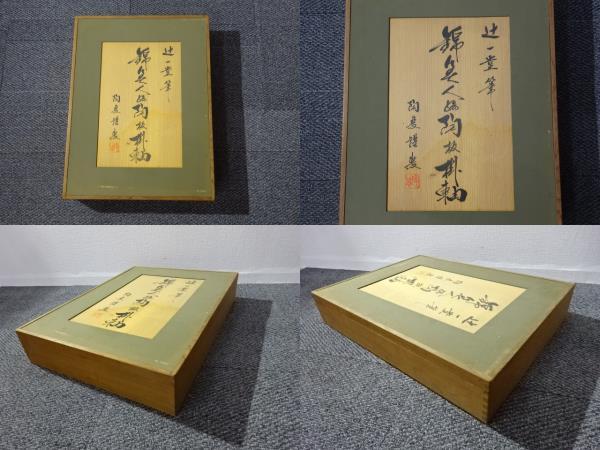 辻一堂筆
錦美人絵陶板掛軸
陶慶謹製